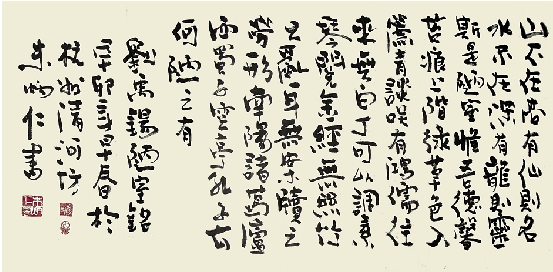 山不在高有仙則名
水不在深有龍則靈
斯是陋室惟吾德馨
苔痕上階綠草色入
簾青談咲有鴻儒往
來無白丁可以調素
琴閱金經無絲竹
之亂耳無案牘之
勞形南陽諸葛廬
西蜀子雲亭孔子云
何陋之有
劉禹錫陋室銘
辛卯春於
杭州清河坊
朱炳仁書